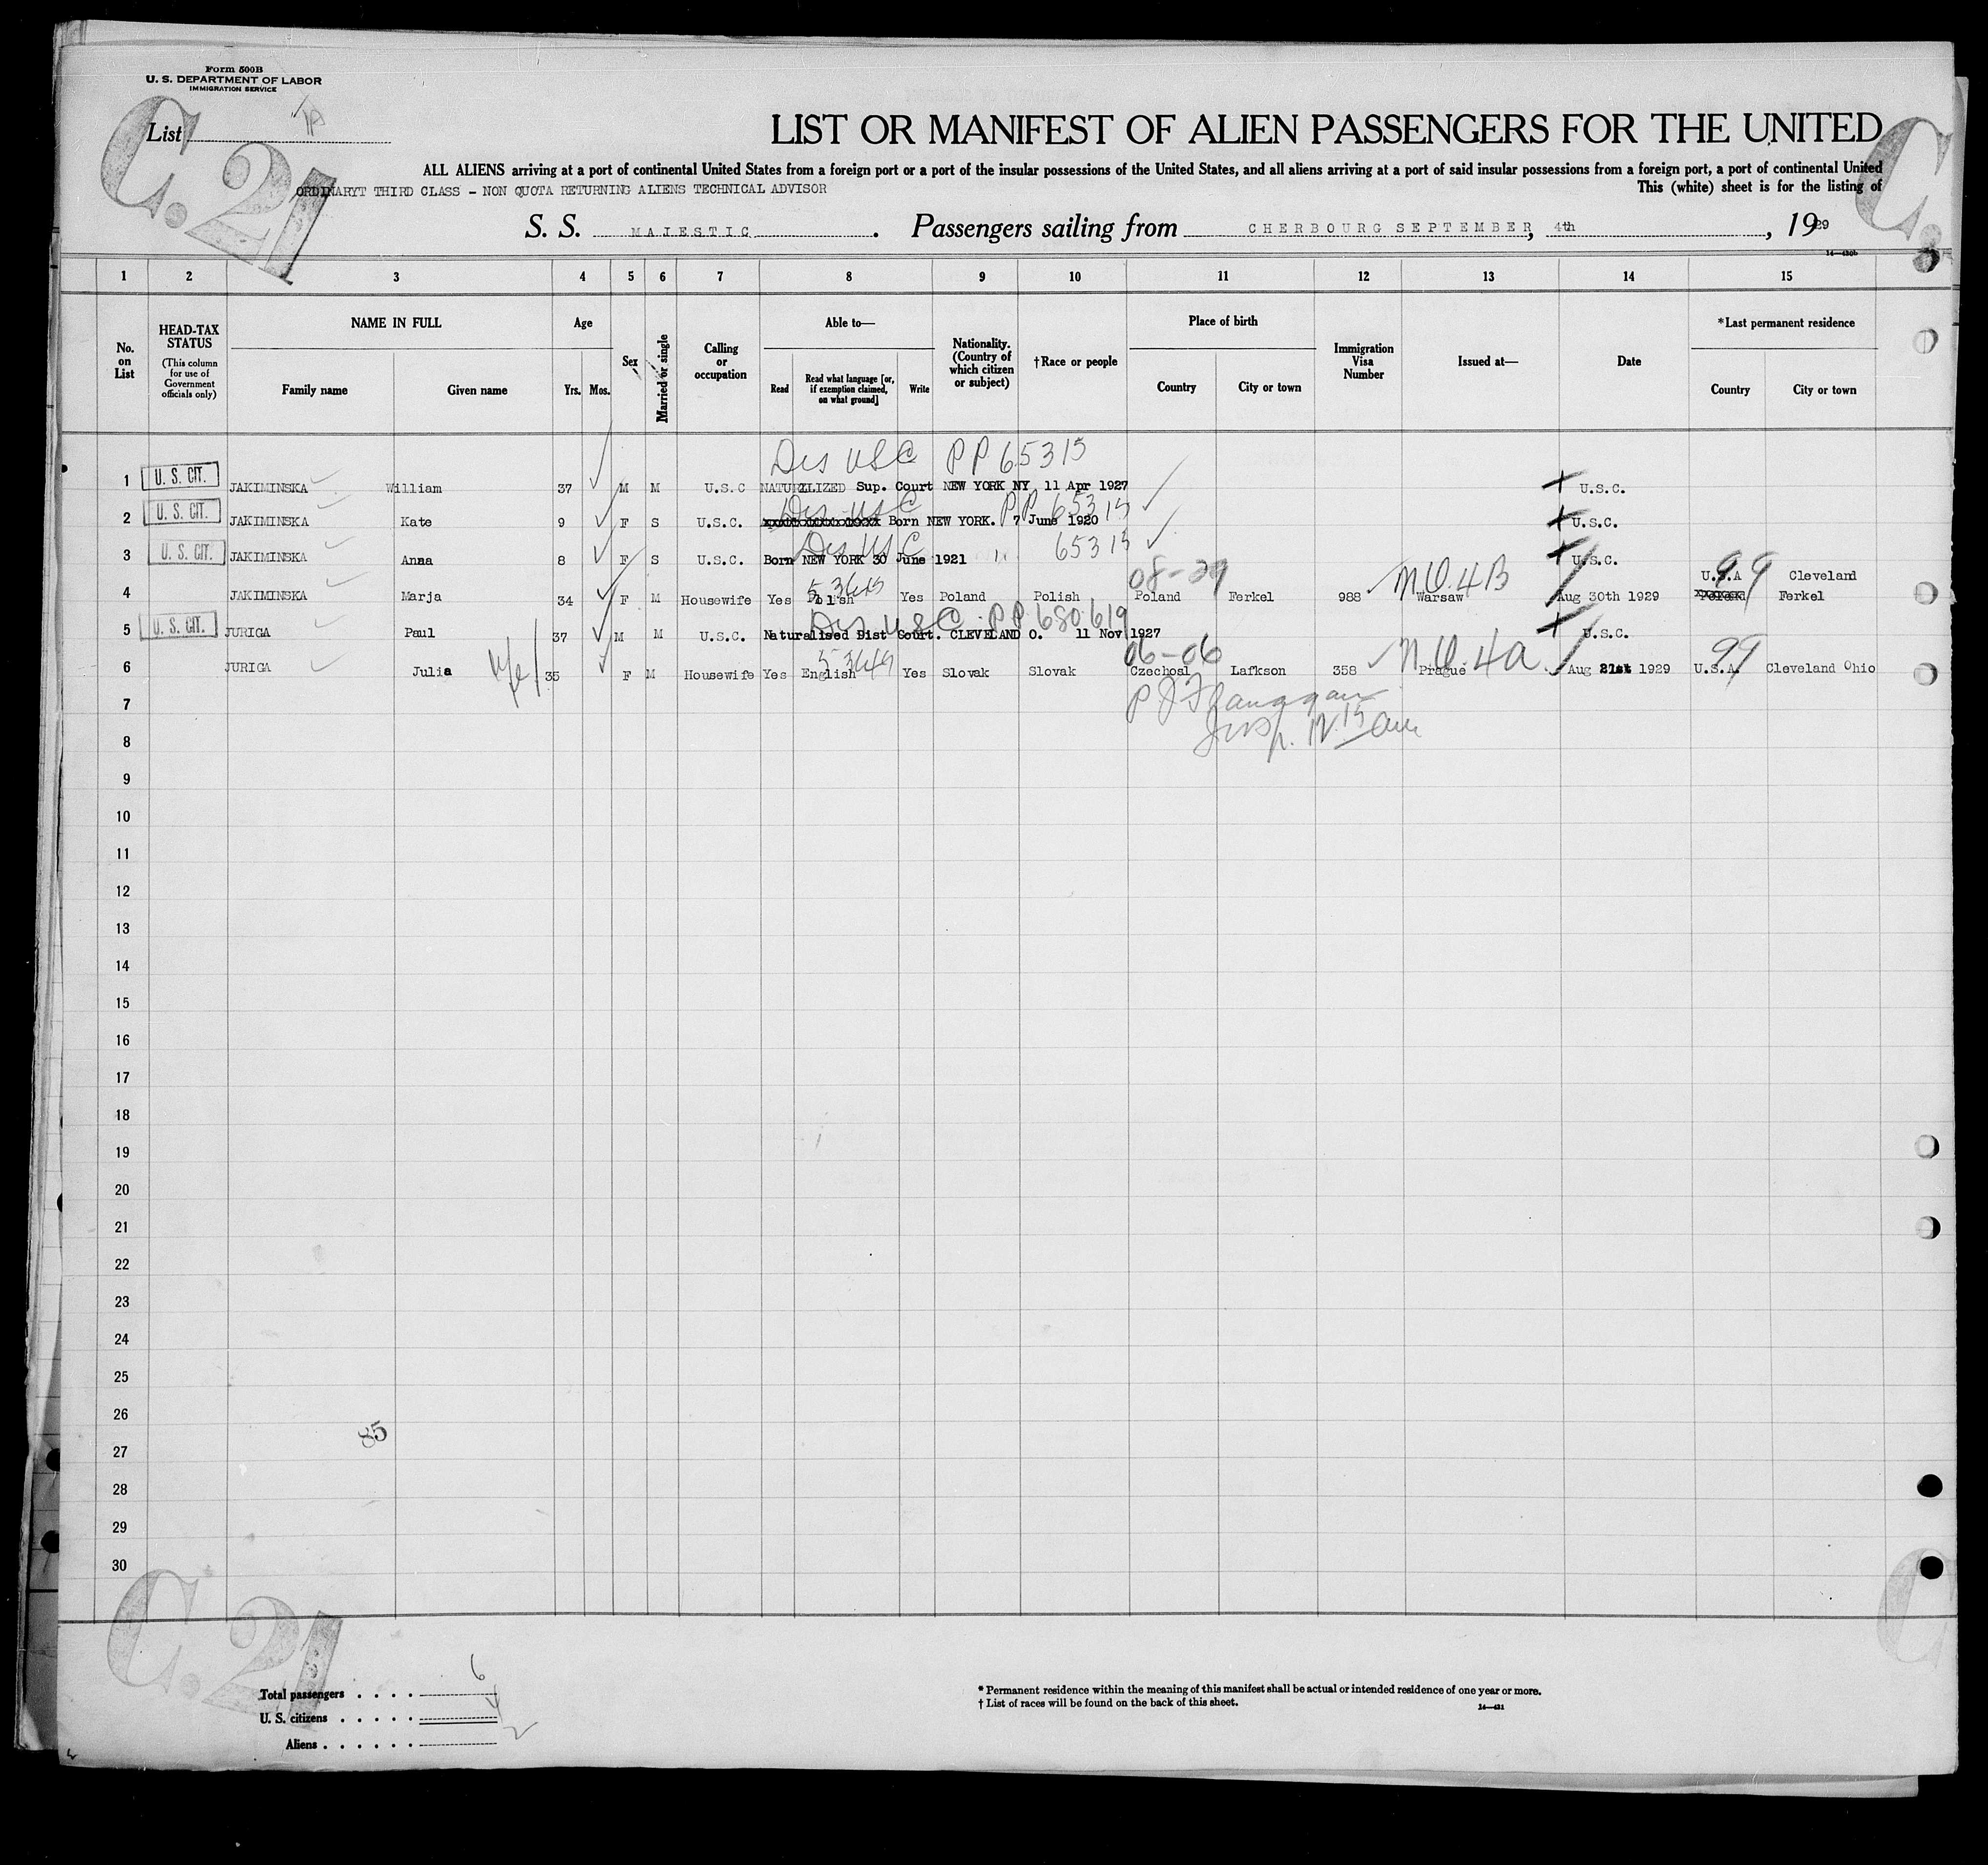 Form 500B
U. S. DEPARTMENT OF LABOR
IMMIGRATION SERVICE
List
C.21
C.
LIST OR MANIFEST OF ALIEN PASSENGERS FOR THE UNITED
ALL ALIENS arriving at a port of continental United States from a foreign port or a port of the insular possessions of the United States, and all aliens arriving at a port of said insular possessions from a foreign port, a port of continental United
ORDINARYT THIRD CLASS - NON QUOTA RETURNING ALIENS TECHNICAL ADVISOR This (white) sheet is for the listing of
S. S. MAJESTIC. Passengers sailing from CHERBOURG SEPTEMBER, 4th, 1929
14—430b
1 2 3 4 5 6 7 8 9 10 11 12 13 14 15
No. on List
HEAD-TAX STATUS
(This column for use of Government officials only)
NAME IN FULL
Family name Given name
Age
Yrs. Mos.
Sex
Married or single
Calling or occupation
Able to—
Read
Read what language [or, if exemption claimed, on what ground]
Write
Nationality. (Country of which citizen or subject)
†Race or people
Place of birth
Country City or town
Immigration Visa Number
Issued at—
Date
*Last permanent residence
Country City or town
Dis USC PP 65315
1 U. S. CIT. JAKIMINSKA William 37 M M U.S.C NATURLIZED Sup. Court NEW YORK NY, 11 Apr 1927 U.S.C.
Dis USC PP 65315
2 U. S. CIT. JAKIMINSKA Kate 9 F S U.S.C. Born NEW YORK. 7 June 1920 U.S.C.
Dis USC 65315
3 U. S. CIT. JAKIMINSKA Anna 8 F S U.S.C. Born NEW YORK 30 June 1921 U.S.C.
08-29 U.S.A 99 Cleveland
4 JAKIMINSKA Marja 34 F M Housewife Yes Polish Yes Poland Polish Poland Ferkel 988 Warsaw N.Q. 4B Aug 30th 1929 Poland Ferkel
Dis USC PP 680619
5 U. S. CIT. JURIGA Paul 37 M M U.S.C. Naturalised Dist Court. CLEVELAND O. 11 Nov 1927 U.S.C.
06-06 99
6 JURIGA Julia 35 F M Housewife Yes English Yes Slovak Slovak Czechosl Lafkson 358 Prague N.Q. 4a Aug 21st 1929 U.S.A. Cleveland Ohio
7 P J Flanagan
8 Insp. 12.15 am
9
10
11
12
13
14
15
16
17
18
19
20
21
22
23
24
25
26
85
27
28
29
30
C.21
C
Total passengers . . . . 6
U. S. citizens . . . . . 4
Aliens . . . . . . 2
* Permanent residence within the meaning of this manifest shall be actual or intended residence of one year or more.
† List of races will be found on the back of this sheet.
14—431